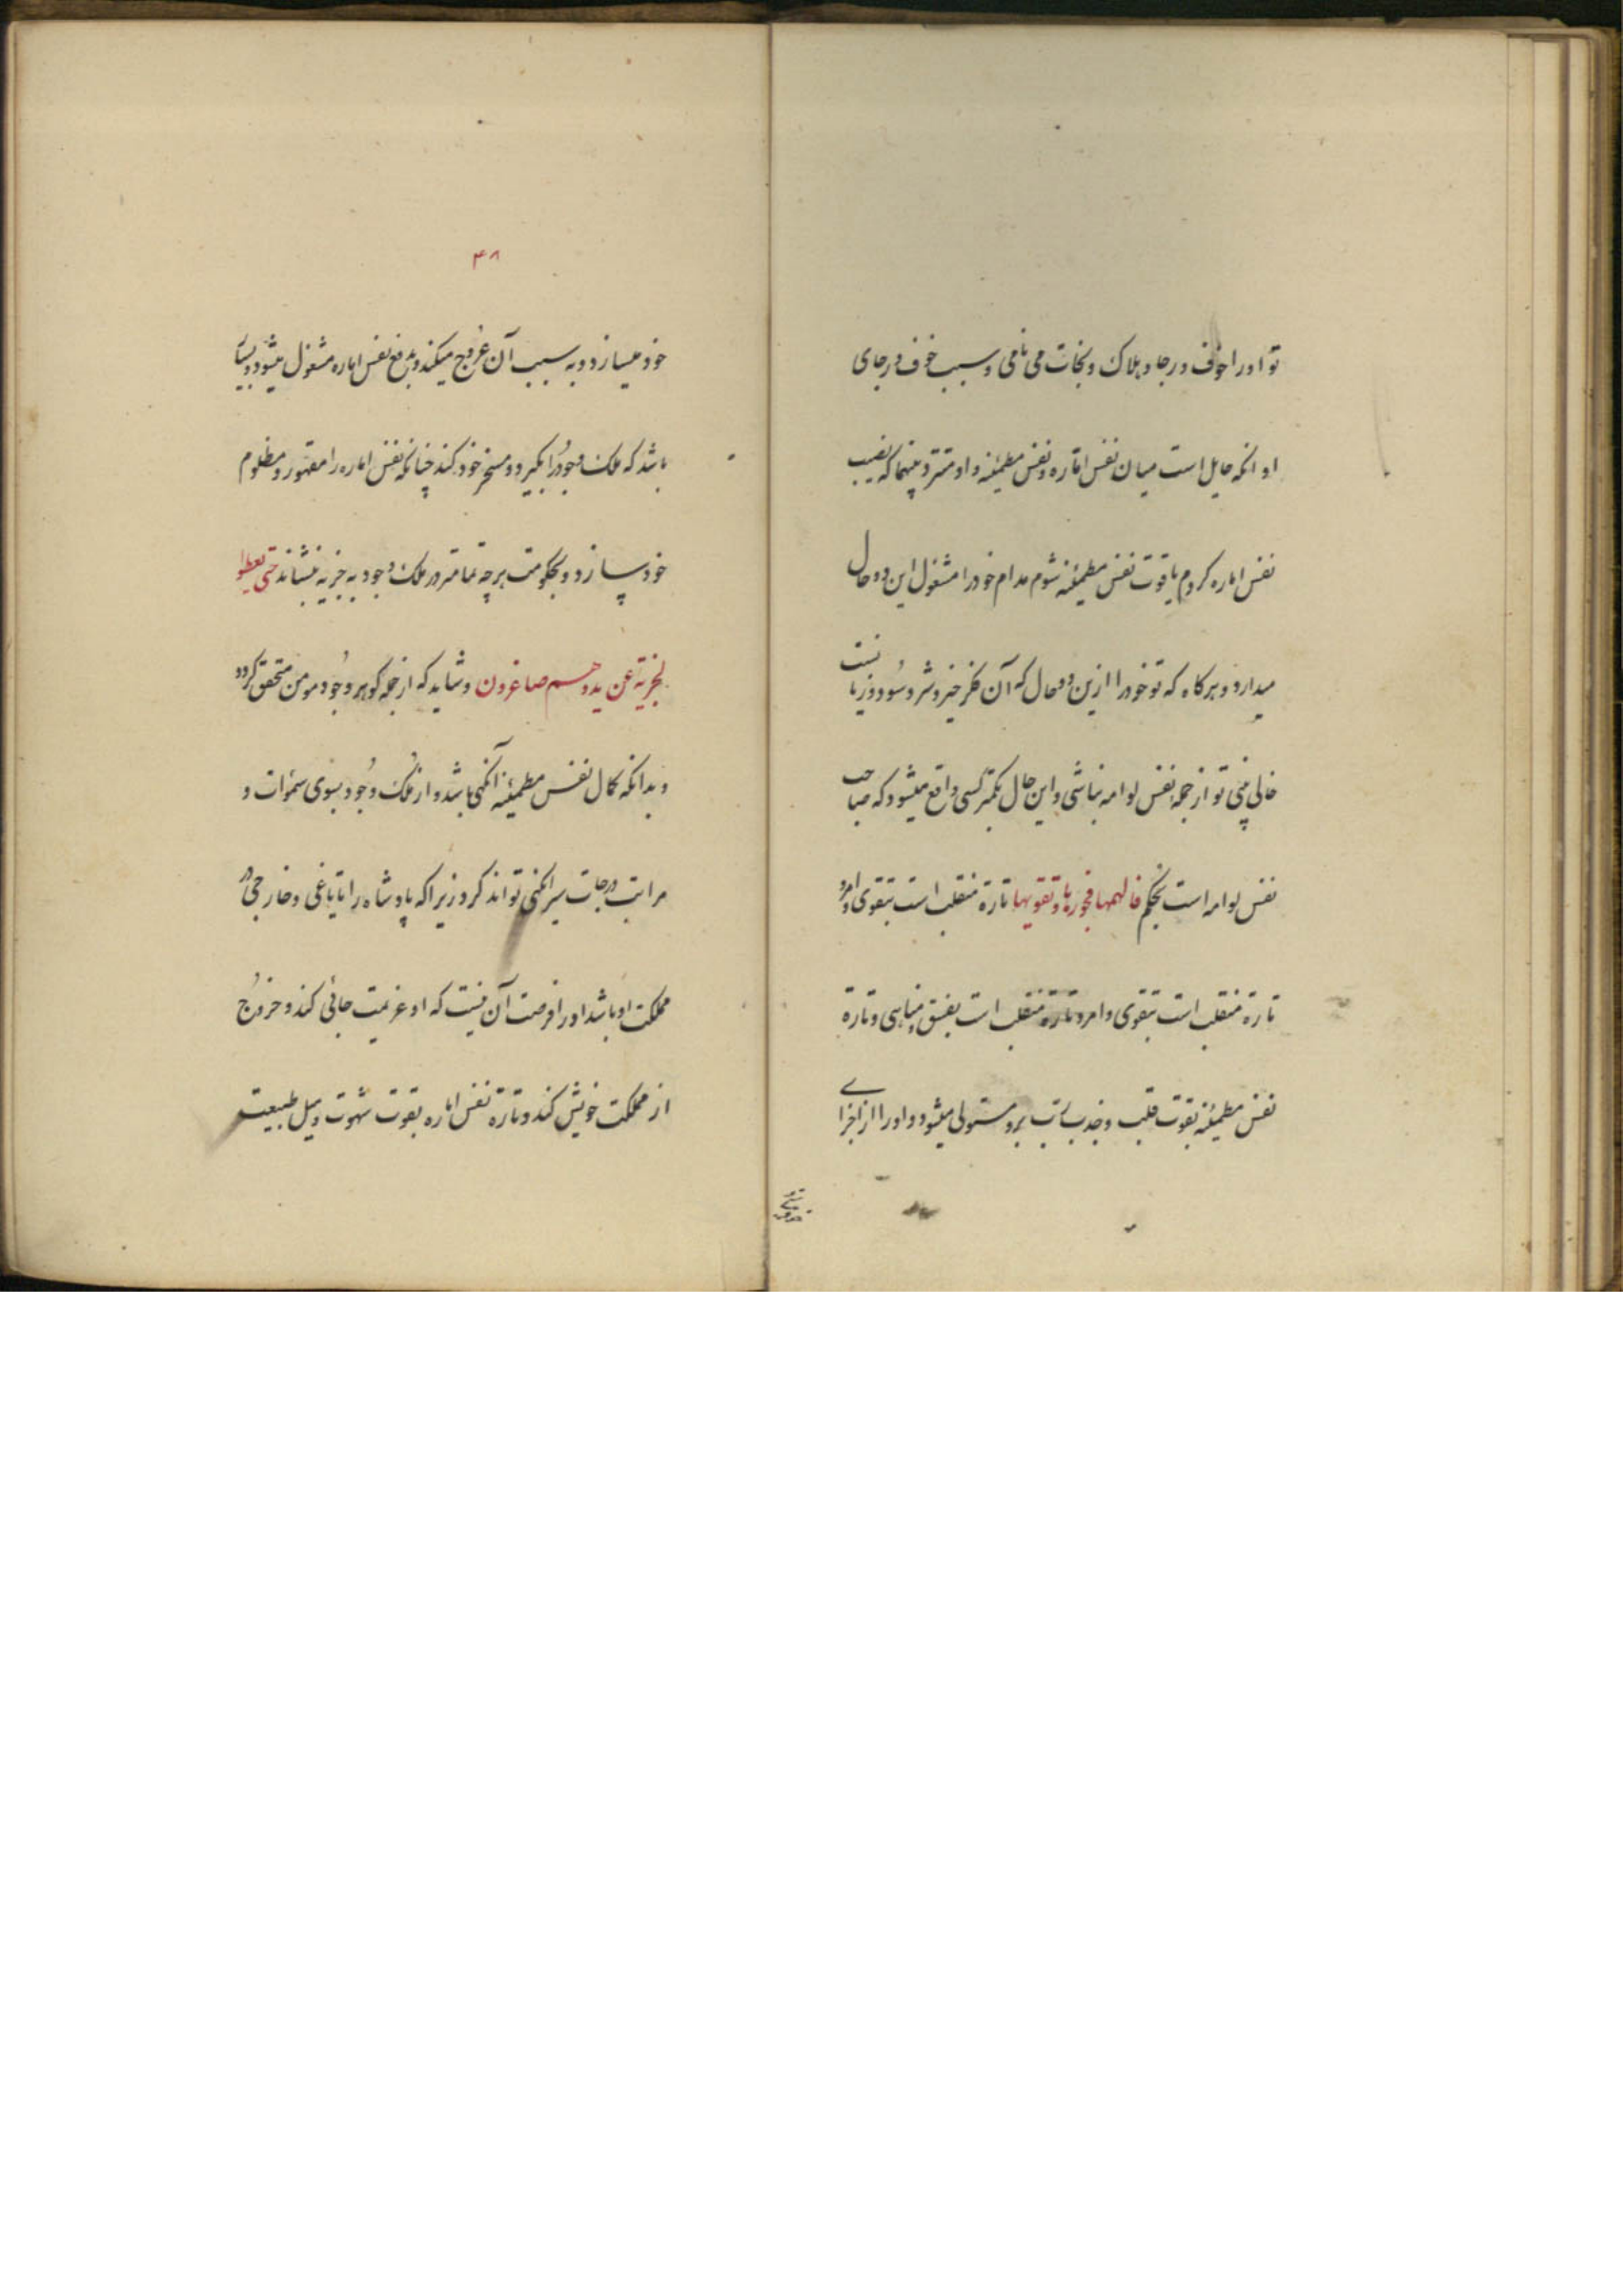 تو او را خوف و رجا و هلاک و نجات می نامی و سبب خوف و رجای
او انکه حایل است میان نفس اماره و نفس مطمئنه و او متردد بینهما که نصیب
نفس اماره کردم یا قوت نفس مطمئنه شوم مدام خود را مشغول این دو حال
میدارد و هر کاه که تو خود را ازین دو حال که آن فکر خیر و شر و سود و زیانست
خالی بینی تو از جمله نفس لوامه نباشی و این حال بکمتر کسی واقع میشود که صاحب
نفس لوامه است بحکم فالهمها فجورها و تقویها تارة منقلب است بتقوی و امرد
تارة منقلب است بتقوی و امرد و تارة منقلب است بفسق و مناهی و تارة
نفس مطمئنه بقوت قلب و جذبات برو مستولی میشود و او را از اجزای
۴۸
خود میسازد و به سبب آن عروج میکند و بدفع نفس اماره مشغول میشود و بسیار
باشد که ملک وجود را بگیرد و مسخر خود کند چنانکه نفس اماره را مقهور و مظلوم
خود سازد و بحکومت هر چه تمامتر در ملک وجود به جزیه بنشاند حتی یعطوا
الجزیة عن ید و هم صاغرون و شاید که از جمله کوهر وجود مومن متحقق کردد
و بدانکه کمال نفس مطمئنه آنگهی باشد و از ملک وجود بسوی سموات و
مراتب درجات سیر آنگهی تواند کرد زیرا که پادشاه را تا یاغی و خارجی در
مملکت او باشد او را فرصت آن نیست که او عزیمت جائی کند و خروج
از مملکت خویش کند و تارة نفس اماره بقوت شهوت و میل طبیعت